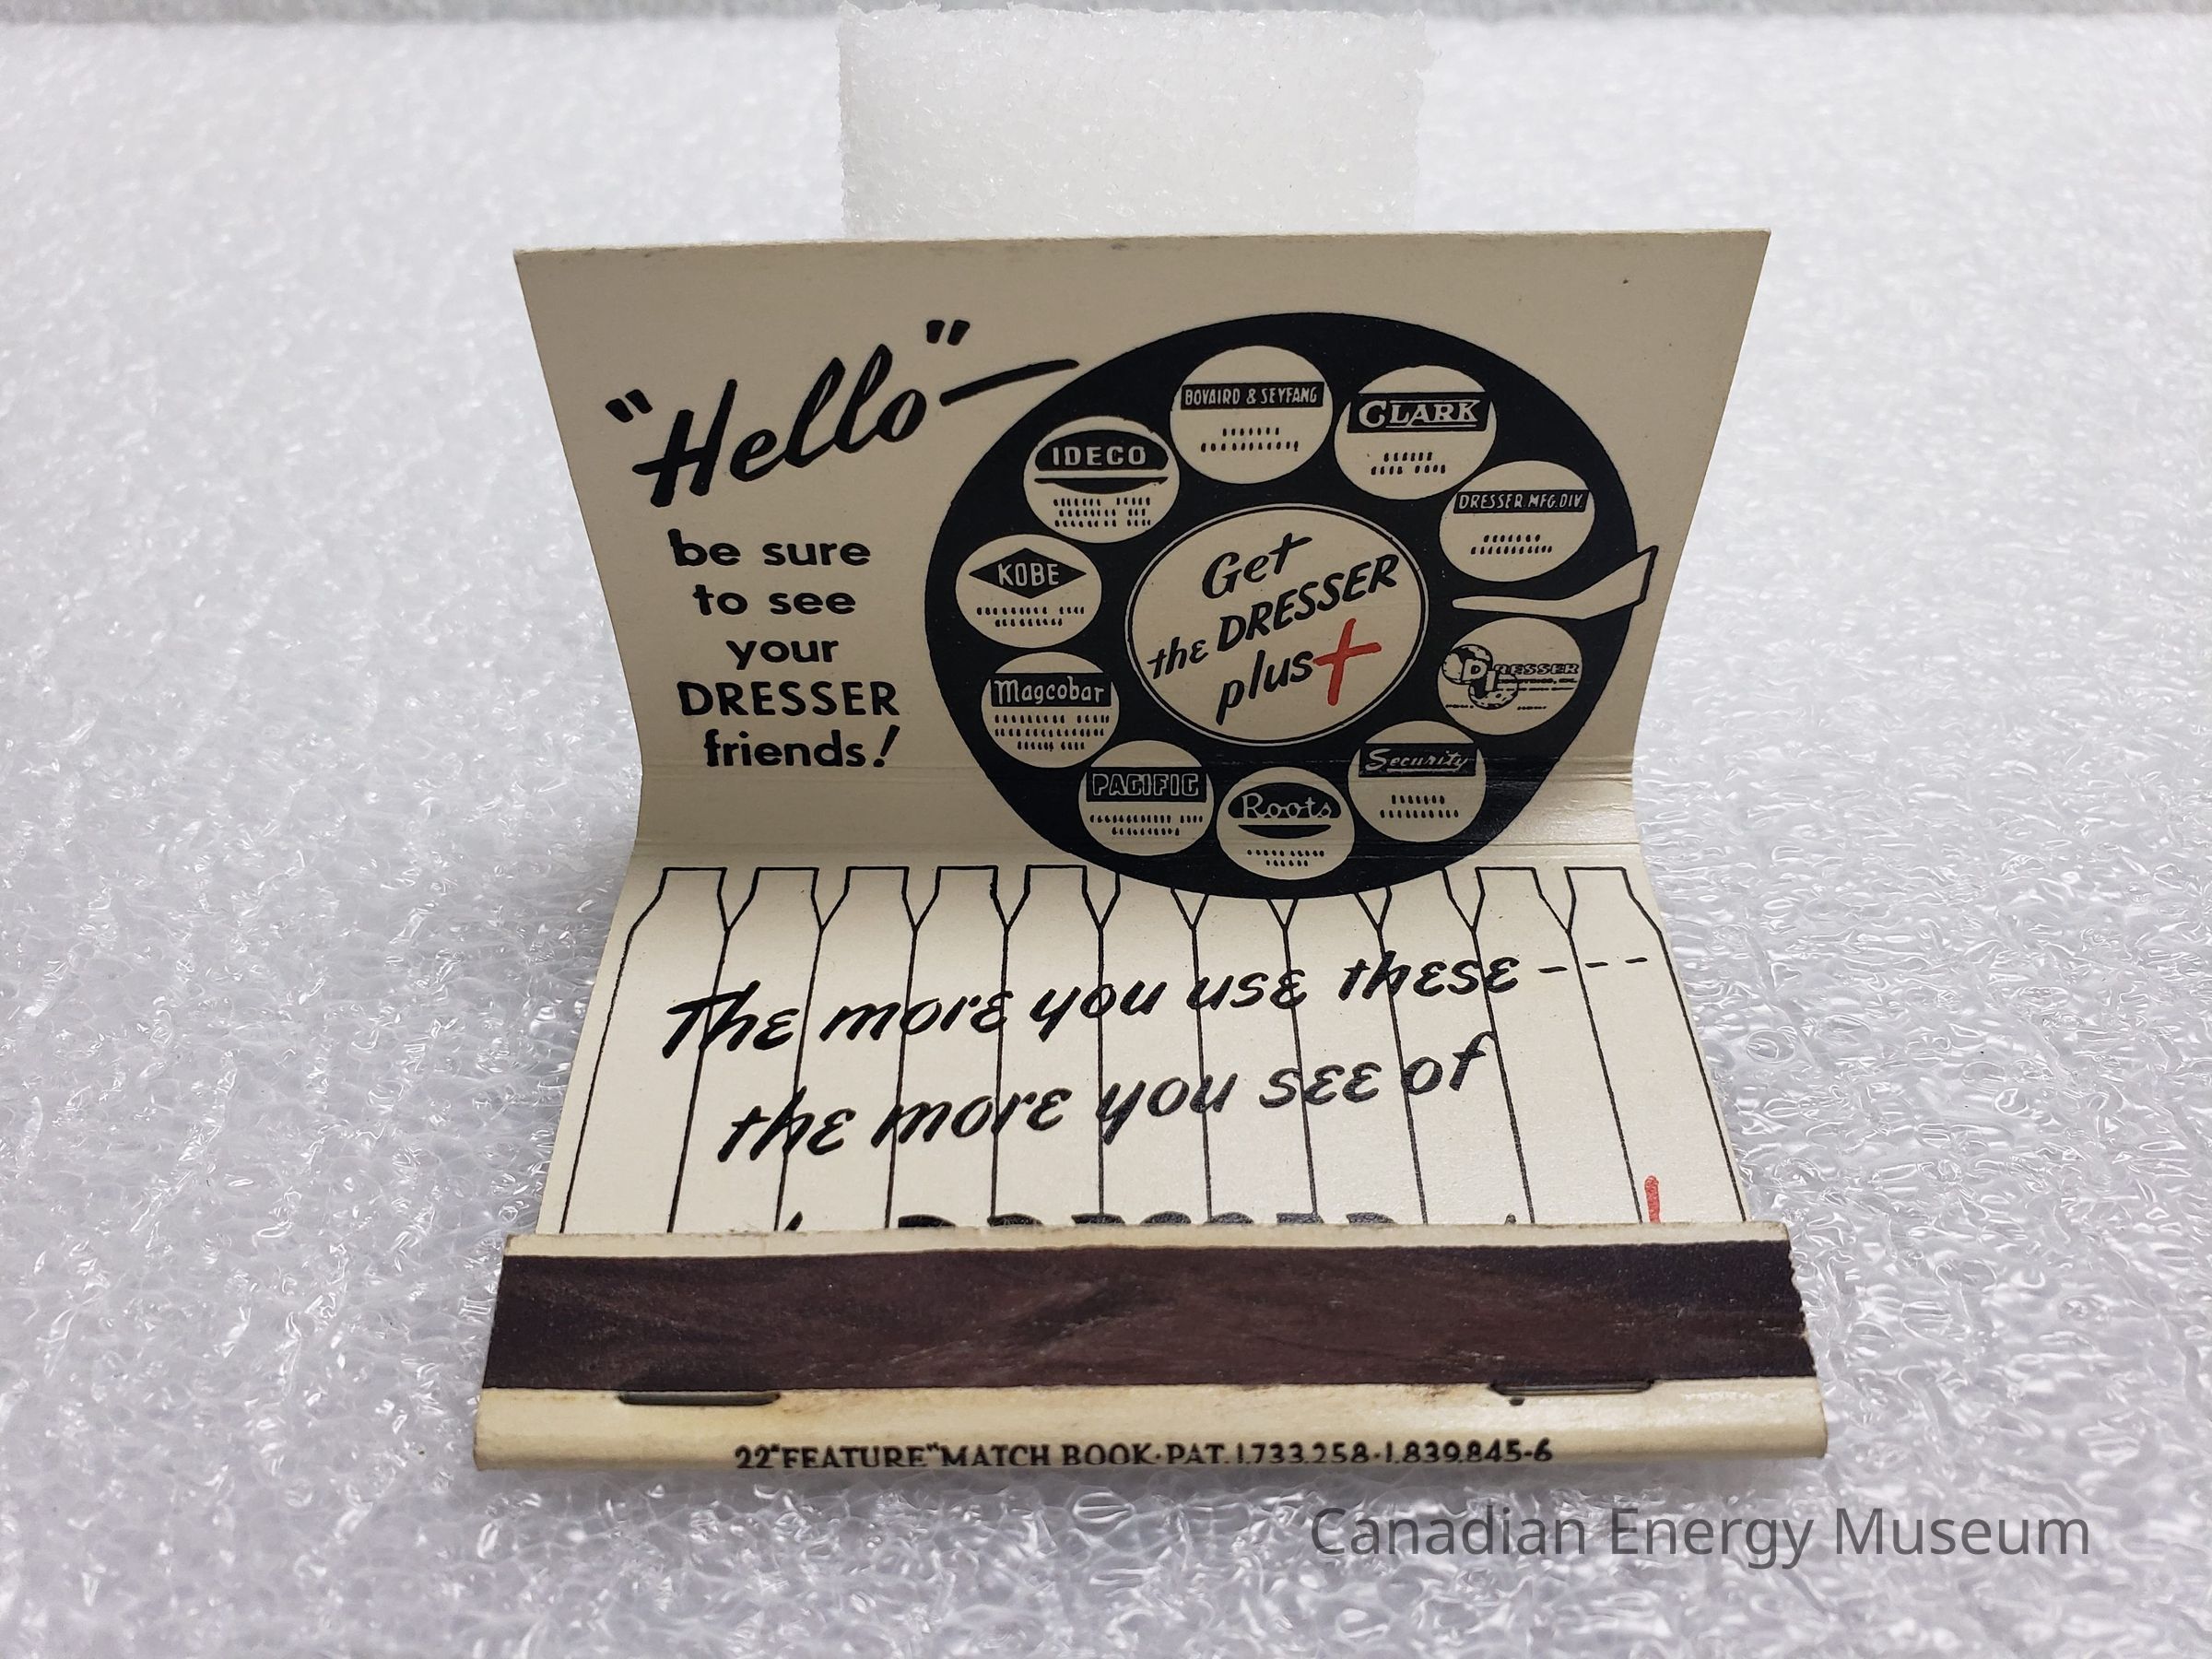 "Hello"—
be sure
to see
your
DRESSER
friends!
BOVAIRD & SEYFANG
CLARK
IDECO
DRESSER MFG. DIV.
KOBE
Get
the DRESSER
plus+
DRESSER
Magcobar
Security
PACIFIC
Roots
The more you use these---
the more you see of
DRESSER
22 "FEATURE" MATCH BOOK · PAT. 1,733,258 · 1,839,845-6
Canadian Energy Museum